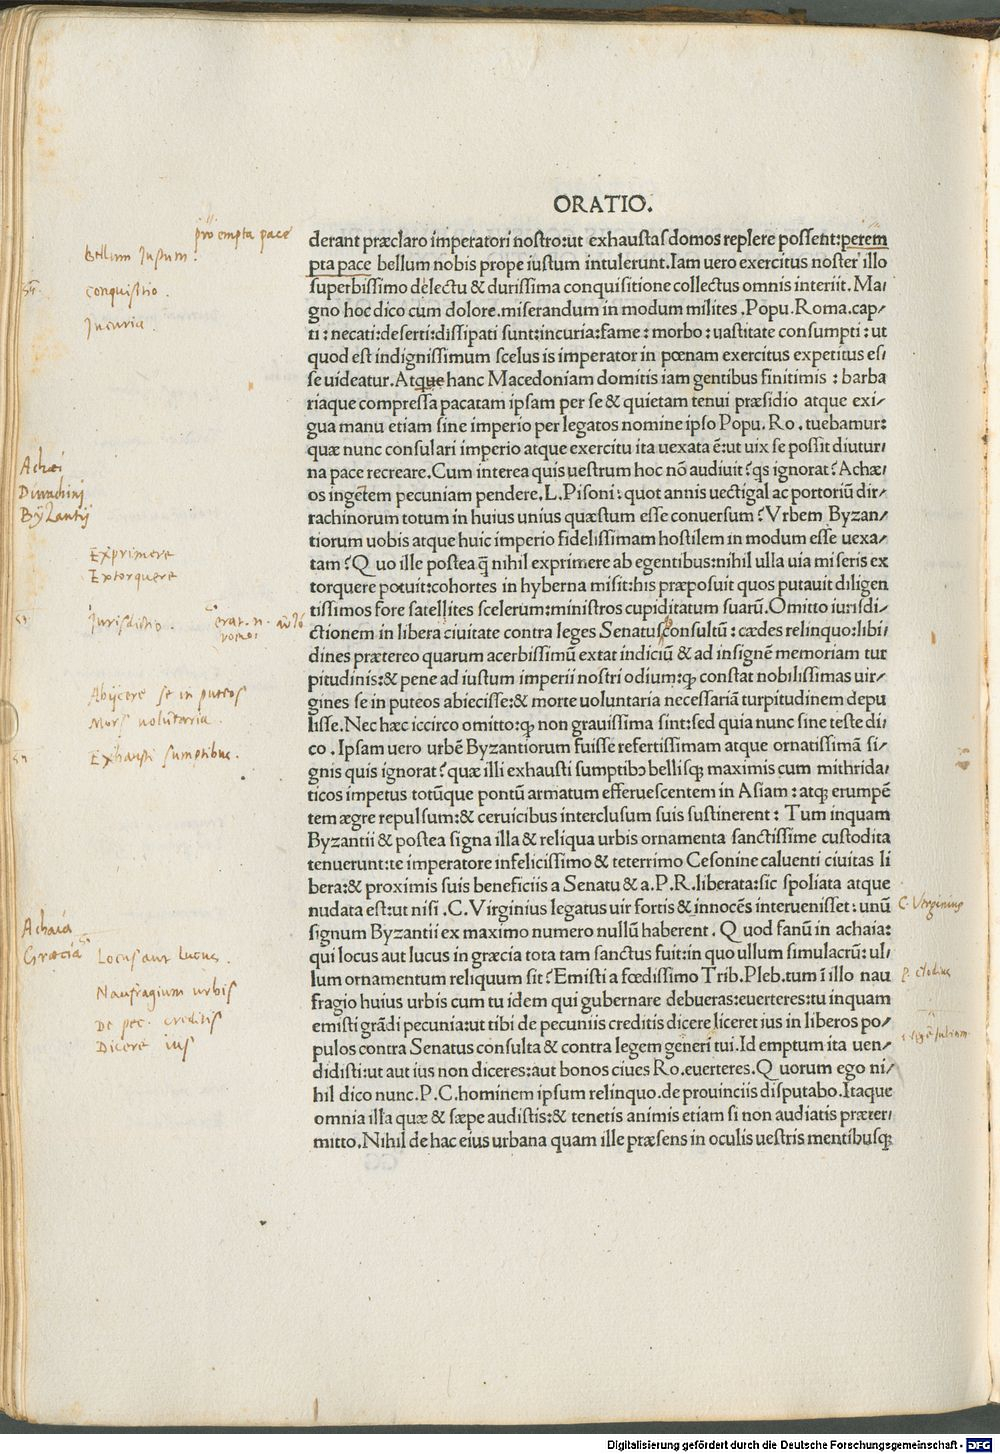 ORATIO.
derant præclaro imperatori nostro:ut exhaustas domos replere possent:perem
pta pace bellum nobis prope iustum intulerunt.Iam uero exercitus noster illo
superbissimo delectu & durissima conquisitione collectus omnis interiit. Ma/
gno hoc dico cum dolore.miserandum in modum milites .Popu.Roma.cap/
ti : necati:deserti:dissipati sunt:incuria:fame : morbo : uastitate consumpti : ut
quod est indignissimum scelus is imperator in pœnam exercitus expetitus es/
se uideatur.Atque hanc Macedoniam domitis iam gentibus finitimis : barba
riaque compressa pacatam ipsam per se & quietam tenui præsidio atque exi/
gua manu etiam sine imperio per legatos nomine ipso Popu. Ro. tuebamur:
quæ nunc consulari imperio atque exercitu ita uexata ē:ut uix se possit diutur/
na pace recreare.Cum interea quis uestrum hoc nō audiuit?qs ignorat?Achæ/
os ingētem pecuniam pendere.L.Pisoni:quot annis uectigal ac portoriū dir/
rachinorum totum in huius unius quæstum esse conuersum?Vrbem Byzan/
tiorum uobis atque huic imperio fidelissimam hostilem in modum esse uexa/
tam?Q uo ille postea q̄ nihil exprimere ab egentibus:nihil ulla uia miseris ex
torquere potuit:cohortes in hyberna misit:his præposuit quos putauit diligen
tissimos fore satellites scelerum:ministros cupiditatum suarū.Omitto iurisdi/
ctionem in libera ciuitate contra leges Senatusconsultū : cædes relinquo:libi/
dines prætereo quarum acerbissimū extat indiciū & ad insignē memoriam tur
pitudinis:& pene ad iustum imperii nostri odium:ꝙ constat nobilissimas uir/
gines se in puteos abiecisse:& morte uoluntaria necessariā turpitudinem depu
lisse. Nec hæc iccirco omitto:ꝙ non grauissima sint:sed quia nunc sine teste di/
co . Ipsam uero urbē Byzantiorum fuisse refertissimam atque ornatissimā si/
gnis quis ignorat?quæ illi exhausti sumptibꝰ bellisqꝫ maximis cum mithrida/
ticos impetus totūque pontū armatum efferuescentem in Asiam : atqꝫ erumpē
tem ægre repulsum:& ceruicibus interclusum suis sustinerent : Tum inquam
Byzantii & postea signa illa & reliqua urbis ornamenta sanctissime custodita
tenuerunt:te imperatore infelicissimo & teterrimo Cesonine caluenti ciuitas li
bera:& proximis suis beneficiis a Senatu & a.P.R.liberata:sic spoliata atque
nudata est:ut nisi .C.Virginius legatus uir fortis & innocēs interuenisset : unū
signum Byzantii ex maximo numero nullū haberent. Q uod fanū in achaia:
qui locus aut lucus in græcia tota tam sanctus fuit:in quo ullum simulacrū: ul/
lum ornamentum reliquum sit?Emisti a fœdissimo Trib.Pleb.tum ī illo nau
fragio huius urbis cum tu idem qui gubernare debueras:euerteres:tu inquam
emisti grādi pecunia:ut tibi de pecuniis creditis dicere liceret ius in liberos po/
pulos contra Senatus consulta & contra legem generi tui.Id emptum ita uen/
didisti:ut aut ius non diceres:aut bonos ciues Ro.euerteres.Q uorum ego ni/
hil dico nunc.P.C.hominem ipsum relinquo.de prouinciis disputabo.Itaque
omnia illa quæ & sæpe audistis:& tenetis animis etiam si non audiatis præter/
mitto.Nihil de hac eius urbana quam ille præsens in oculis uestris mentibusqꝫ
pro empta pace
bellum Justum.
conquisitio.
Jncuria.
Achæi
Dirrachini
Byzantij
Exprimere
Extorquere
Jurisdictio.
Abijcere se in puteos
Mors voluntaria.
Exhausti sumptibus.
Achaia
Græcia
Locus aut Lucus.
Naufragium urbis
De pec. creditis
Dicere ius
C. Virginius
P. Clodius
Digitalisierung gefördert durch die Deutsche Forschungsgemeinschaft - DFG